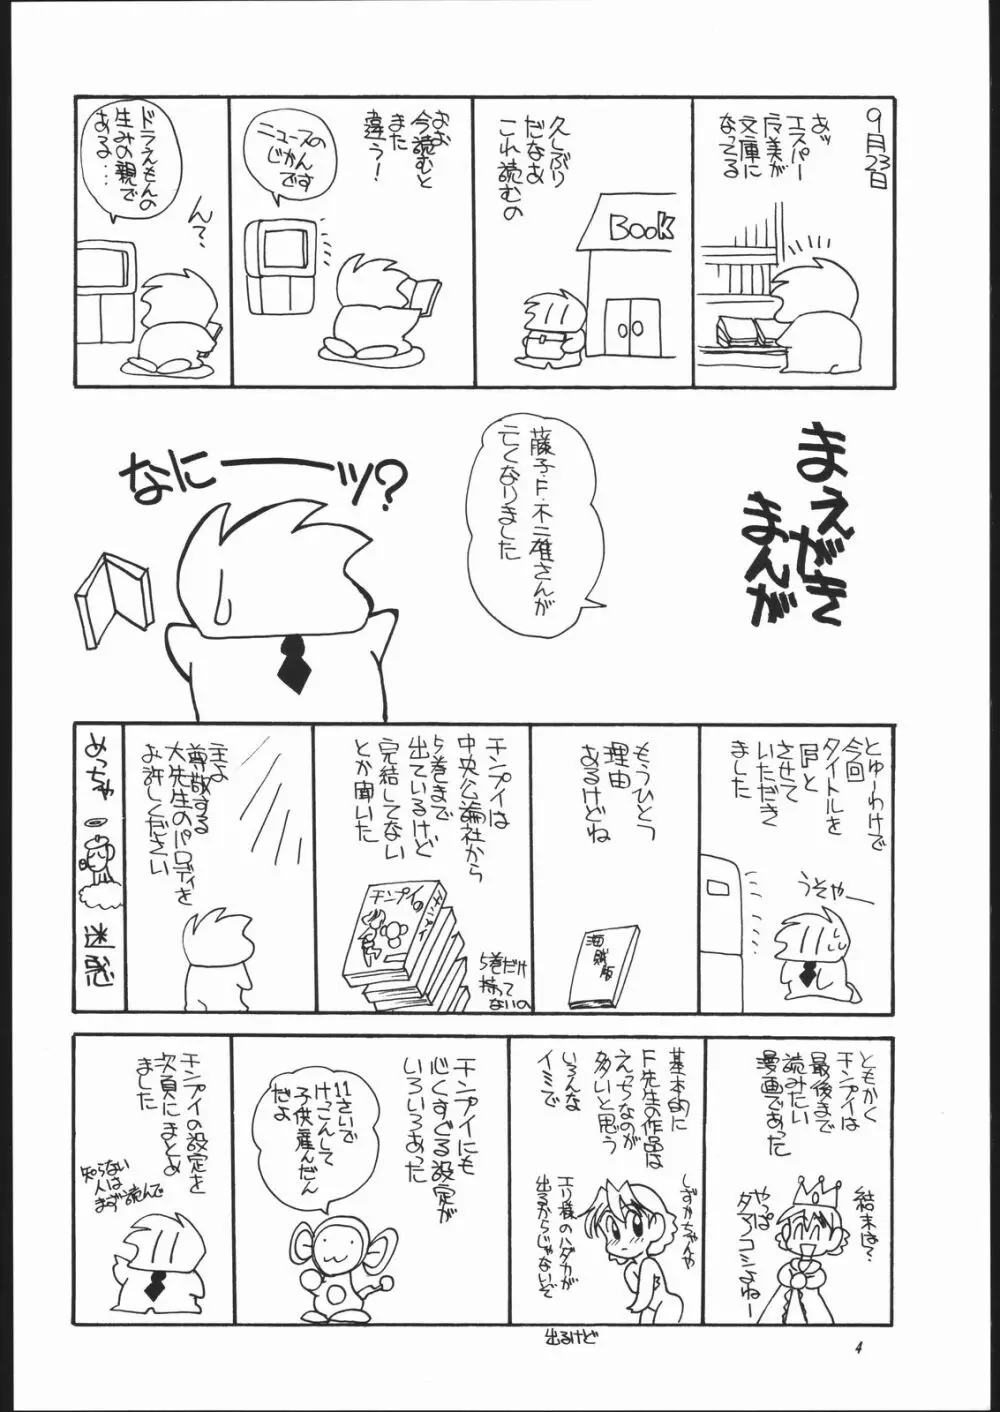 9月23日
あッ
エスパー
魔美が
文庫に
なってる
Book
久しぶり
だなあ
これ読むの
おお
今読むと
また
違う!
ニュースの
じかんです
ドラえもんの
生みの親で
ある…
ん?
まえがき
まんが
藤子・F・不二雄さんが
亡くなりました
なにーーッ?
とゆーわけで
今回
タイトルを
「F」と
させて
いただき
ました
うそやー
もうひとつ
理由
あるけどね
海賊版
チンプイは
中央公論社から
5巻まで
出ているけど
完結してない
とか聞いた
チンプイ
5巻だけ
持って
ないの
主よ
尊敬する
大先生のパロディを
お許しください
めっちゃ
迷惑
ともかく
チンプイは
最後まで
読みたい
漫画であった
結末は?
やっぱ
ダァァコシよねー
基本的に
F先生の作品は
えっちなのが
多いと思う
いろんな
イミで
しずかちゃんや
エリ様のハダカが
出るからじゃないぞ
出るけど
チンプイにも
心くすぐる設定が
いろいろあった
11さいで
けっこんして
子供産んだん
だよ
チンプイの設定を
次頁にまとめ
ました
知らない
人は
まず読んで
4